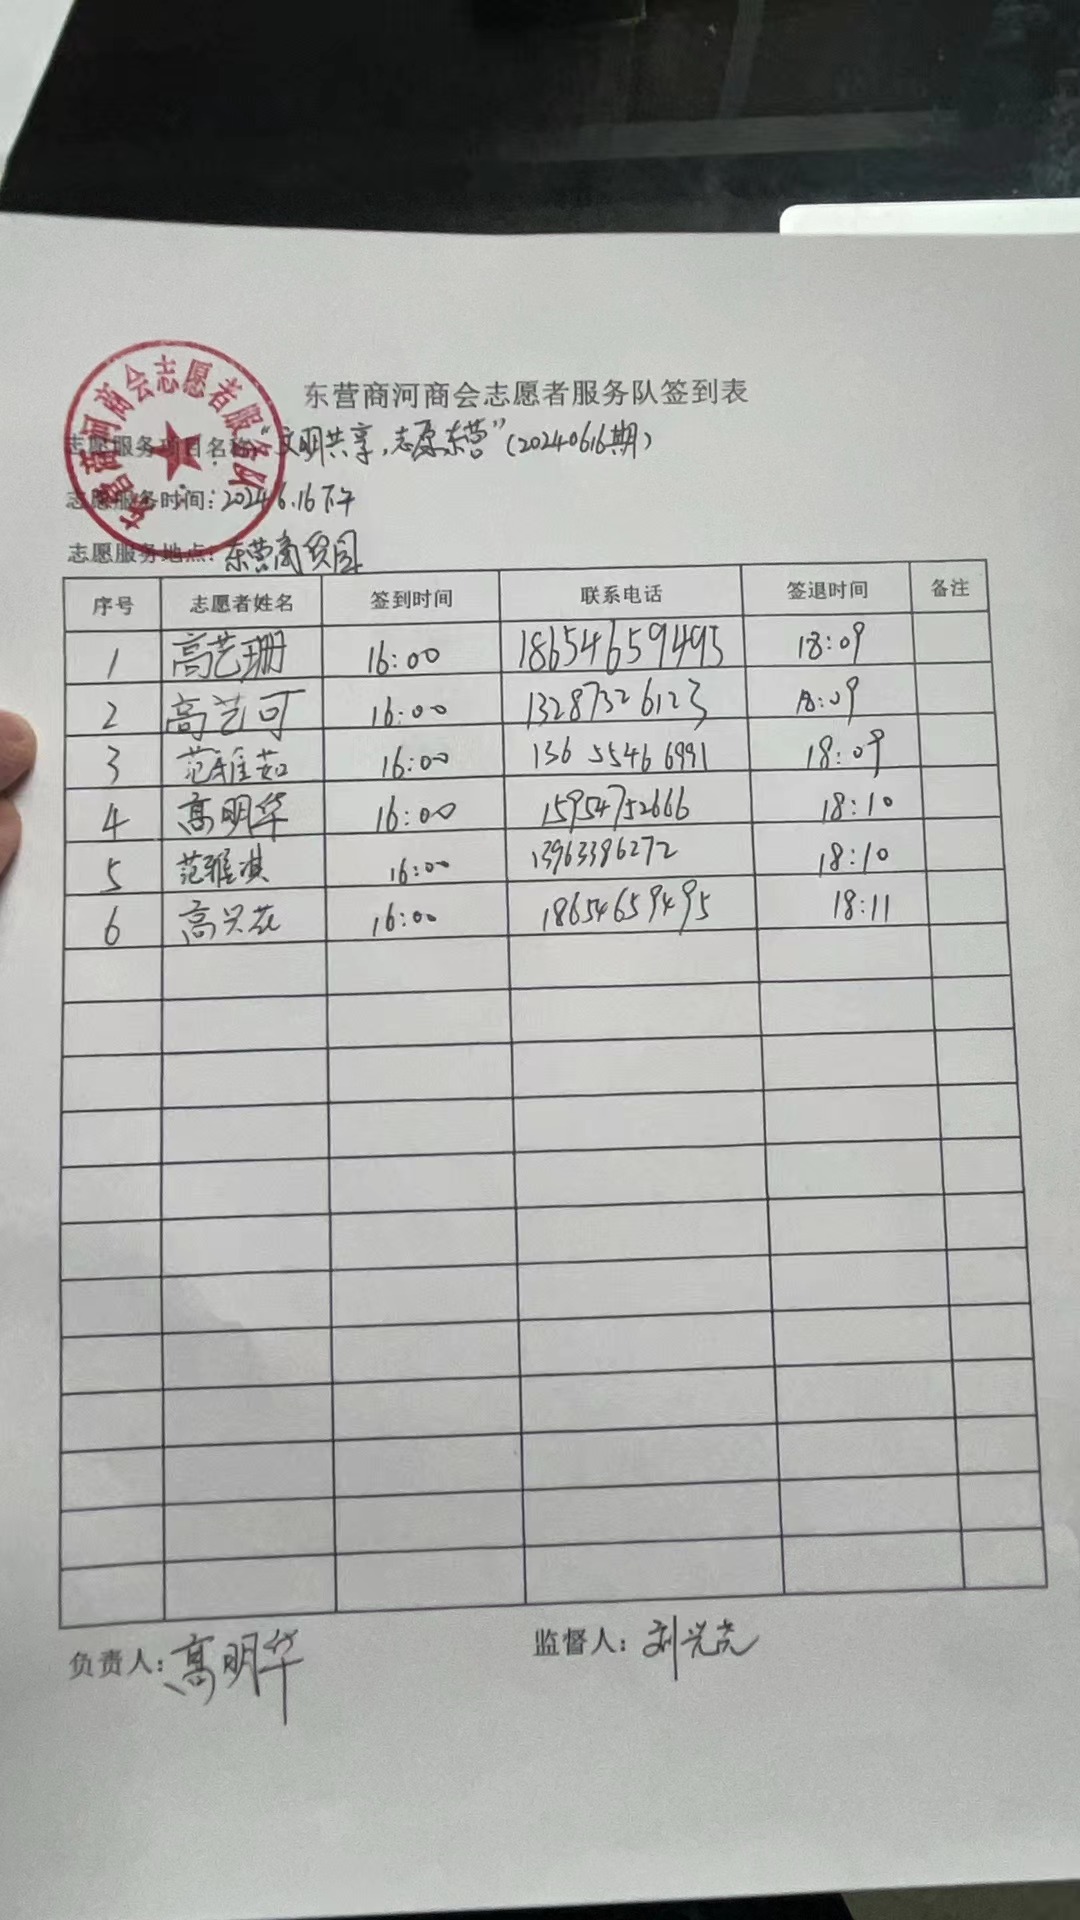 东营商河商会志愿者服务队签到表
东营商河商会志愿者服务队
志愿服务项目名称:“文明共享,志愿东营”(20240616期)
志愿服务时间:2024.6.16下午
志愿服务地点:东营商贸园
序号 志愿者姓名 签到时间 联系电话 签退时间 备注
1 高艺珊 16:00 18654659495 18:09
2 高艺可 16:00 13287326123 18:09
3 范雅茹 16:00 136 5546 6991 18:09
4 高明华 16:00 15954752666 18:10
5 范雅淇 16:00 13963386272 18:10
6 高兴花 16:00 18654659495 18:11
负责人:高明华 监督人:刘兴亮